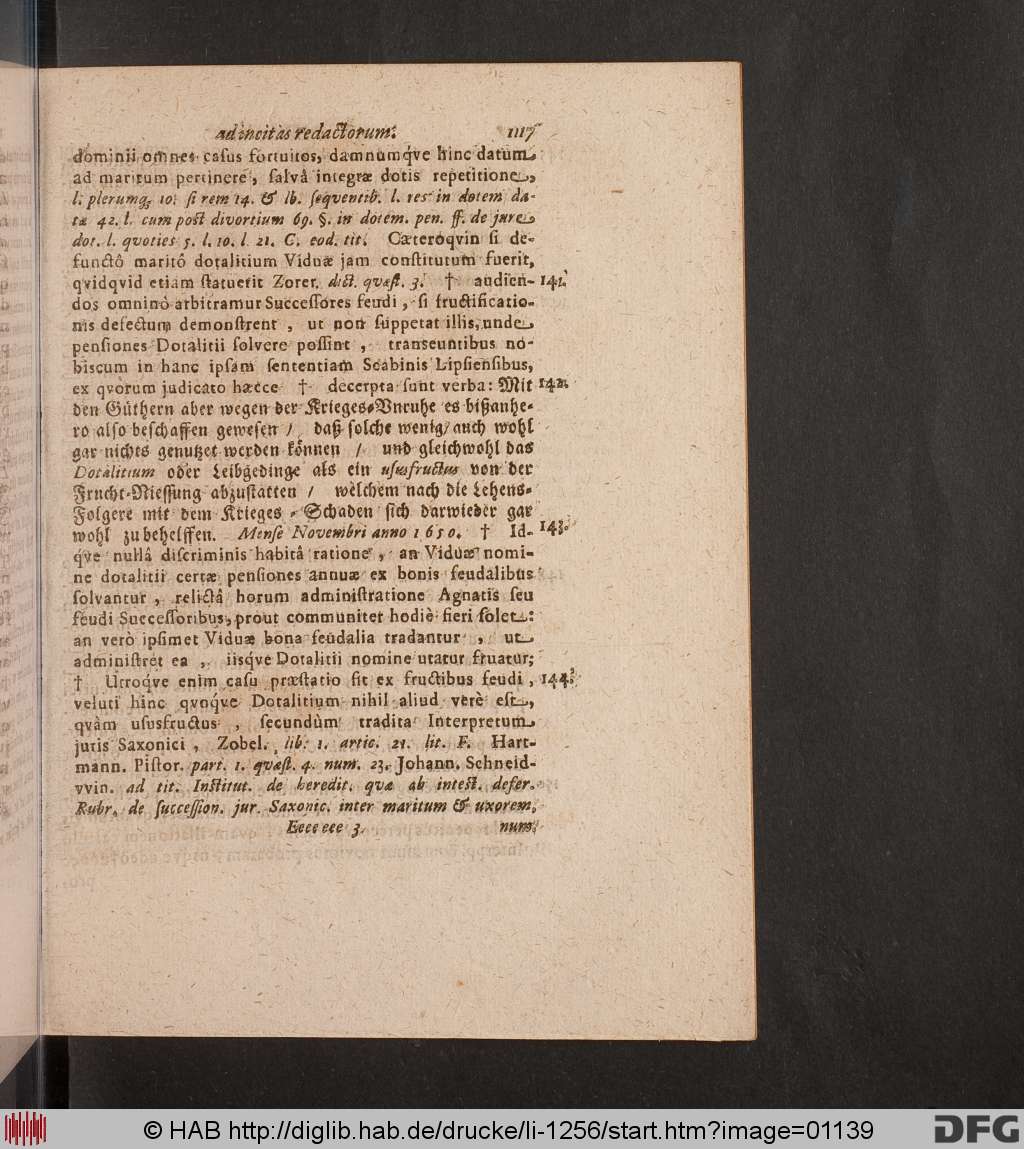 ad incitas redactorum. 1117
dominii omnes casus fortuitos, damnumq́ve hinc datum
ad maritum pertinere, salvâ integræ dotis repetitione,
l. plerumq; 10. si rem 14. & ll. seqventib. l. res in dotem da-
tæ 42. l. cum post divortium 69. §. in dotem. pen. ff. de jure
dot. l. qvoties 5. l. 10. l. 21. C. eod. tit. Cæteroqvin si de-
functô maritô dotalitium Viduæ jam constitutum fuerit,
qvidqvid etiam statuerit Zorer. dict. qvæst. 3. † audien- 141.
dos omninò arbitramur Successores feudi, si fructificatio-
nis defectum demonstrent, ut non suppetat illis, unde
pensiones Dotalitii solvere possint, transeuntibus no-
biscum in hanc ipsam sententiam Scabinis Lipsiensibus,
ex qvorum judicato hæcce † decerpta sunt verba: Mit 142.
den Güthern aber wegen der Krieges-Vnruhe es bißanhe-
ro also beschaffen gewesen / daß solche wenig/ auch wohl
gar nichts genutzet werden können / und gleichwohl das
Dotalitium oder Leibgedinge als ein ususfructus von der
Frucht-Niessung abzustatten / welchem nach die Lehens-
Folgere mit dem Krieges-Schaden sich darwieder gar
wohl zu behelffen. Mense Novembri anno 1650. † Id- 143.
q́ve nullâ discriminis habitâ ratione, an Viduæ nomi-
ne dotalitii certæ pensiones annuæ ex bonis feudalibus
solvantur, relictâ horum administratione Agnatis seu
feudi Successoribus, prout communiter hodiè fieri solet:
an verò ipsimet Viduæ bona feudalia tradantur, ut
administret ea, iisq́ve Dotalitii nomine utatur fruatur;
† Utroq́ve enim casu præstatio fit ex fructibus feudi, 144.
veluti hinc qvoq́ve Dotalitium nihil aliud verè est,
qvàm ususfructus, secundùm tradita Interpretum
juris Saxonici, Zobel. lib. 1. artic. 21. lit. F. Hart-
mann. Pistor. part. 1. qvæst. 4. num. 23. Johann. Schneid-
vvin. ad tit. Institut. de heredit. qvæ ab intest. defer.
Rubr. de succession. jur. Saxonic. inter maritum & uxorem,
Eeee eee 3 num.
© HAB http://diglib.hab.de/drucke/li-1256/start.htm?image=01139
DFG